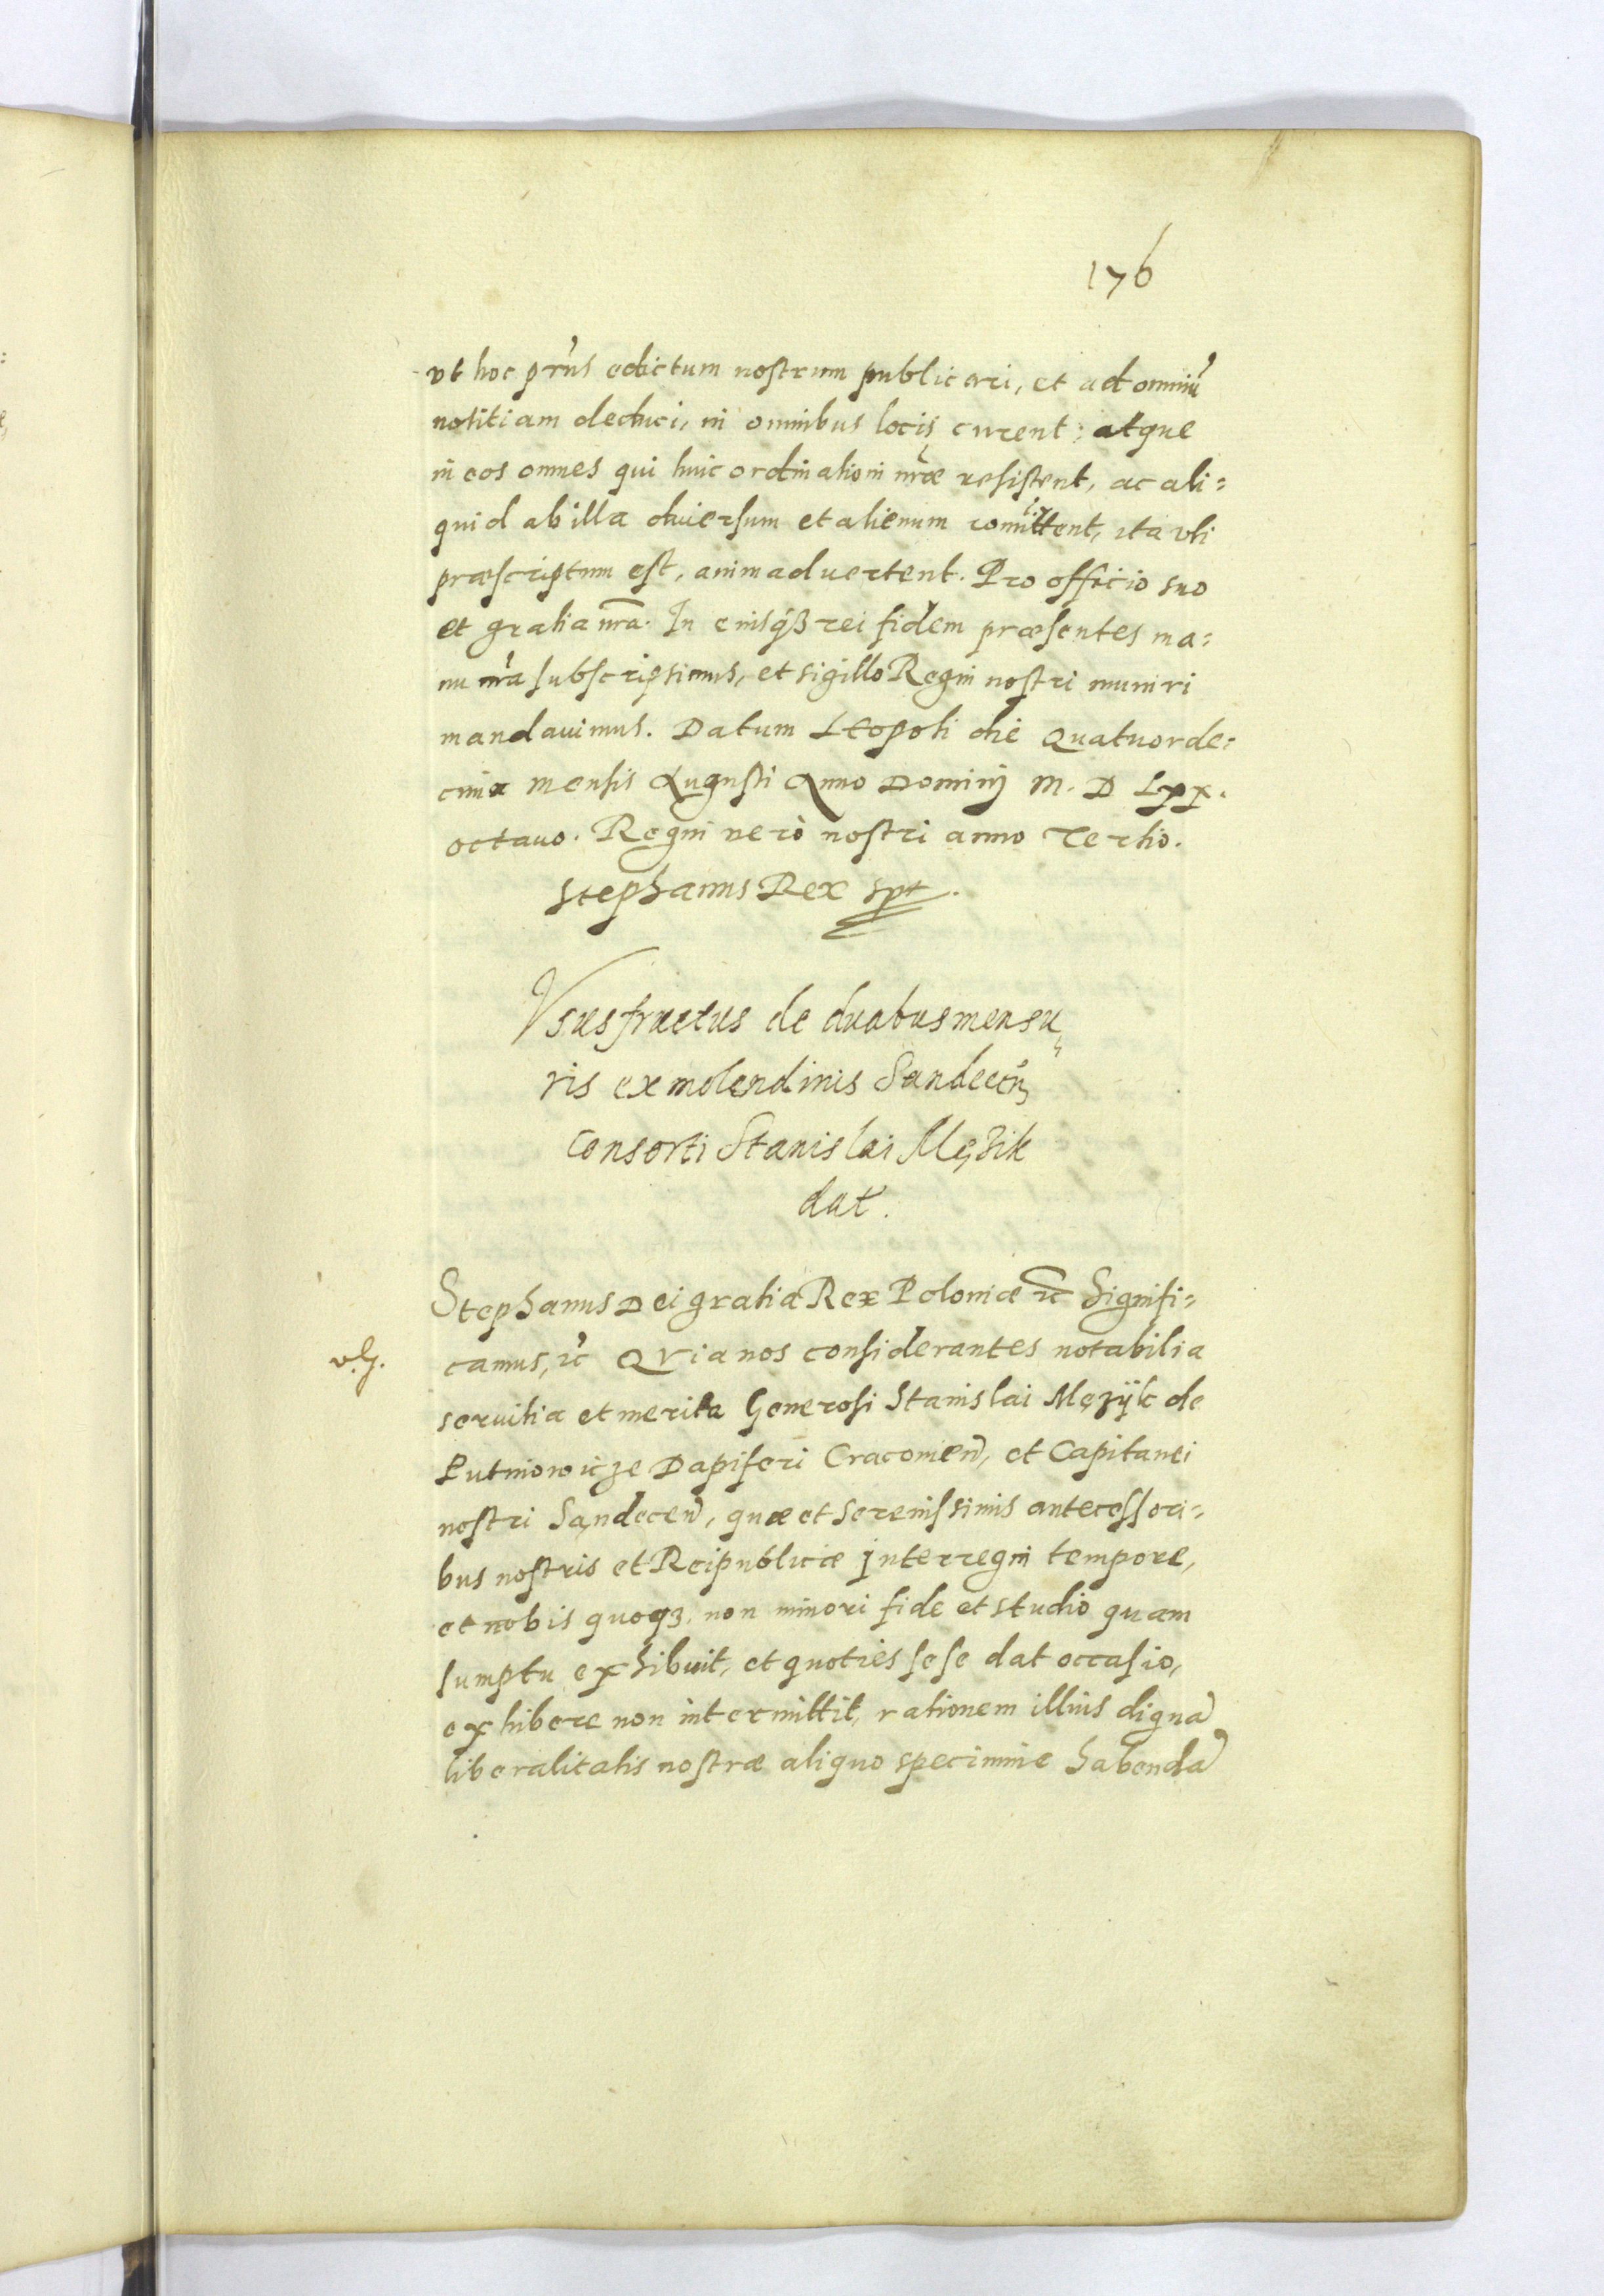 176
vt hoc prñs edictum nostrum publicari, et ad omniũ
notitiam deduci, in omnibus locis curent: atque
in eos omnes qui huic ordinationi nr̃æ resistent, ac ali=
quid ab illa diuersum et alienum comittent, ita vti
præscriptum est, animaduertent. Pro officio suo
et gratia nr̃a. In eiusq́ꝫ rei fidem præsentes ma=
nu nr̃a subscripsimus, et sigillo Regni nostri muniri
mandauimus. Datum Leopoli die Quatuorde=
cima mensis Augusti Anno Dominj M. D Lxx.
octauo. Regni verò nostri anno Tertio.
Stephanus Rex spt.
Vsusfructus de duabus mensu
ris ex molendinis Sandeceñ
consorti Stanislai Mężik
dat̃.
Stephanus Dei gratia Rex Poloniæ ꝛc̃ Signifi=
v.g.
camus, ꝛc̃ Qvia nos considerantes notabilia
seruitia et merita Generosi Stanislai Mężÿk de
Lutniowicze Dapiferi Cracouieñ, et Capitanei
nostri Sąndeceñ, quæ et Serenissimis antecessori=
bus nostris et Reipublicæ interregni tempore,
et nobis quoqꝫ non minori fide et studio quam
sumptu exhibuit, et quoties sese dat occasio,
exhibere non intermittit, rationem illius dignã
liberalitatis nostræ aliquo specimine habendã